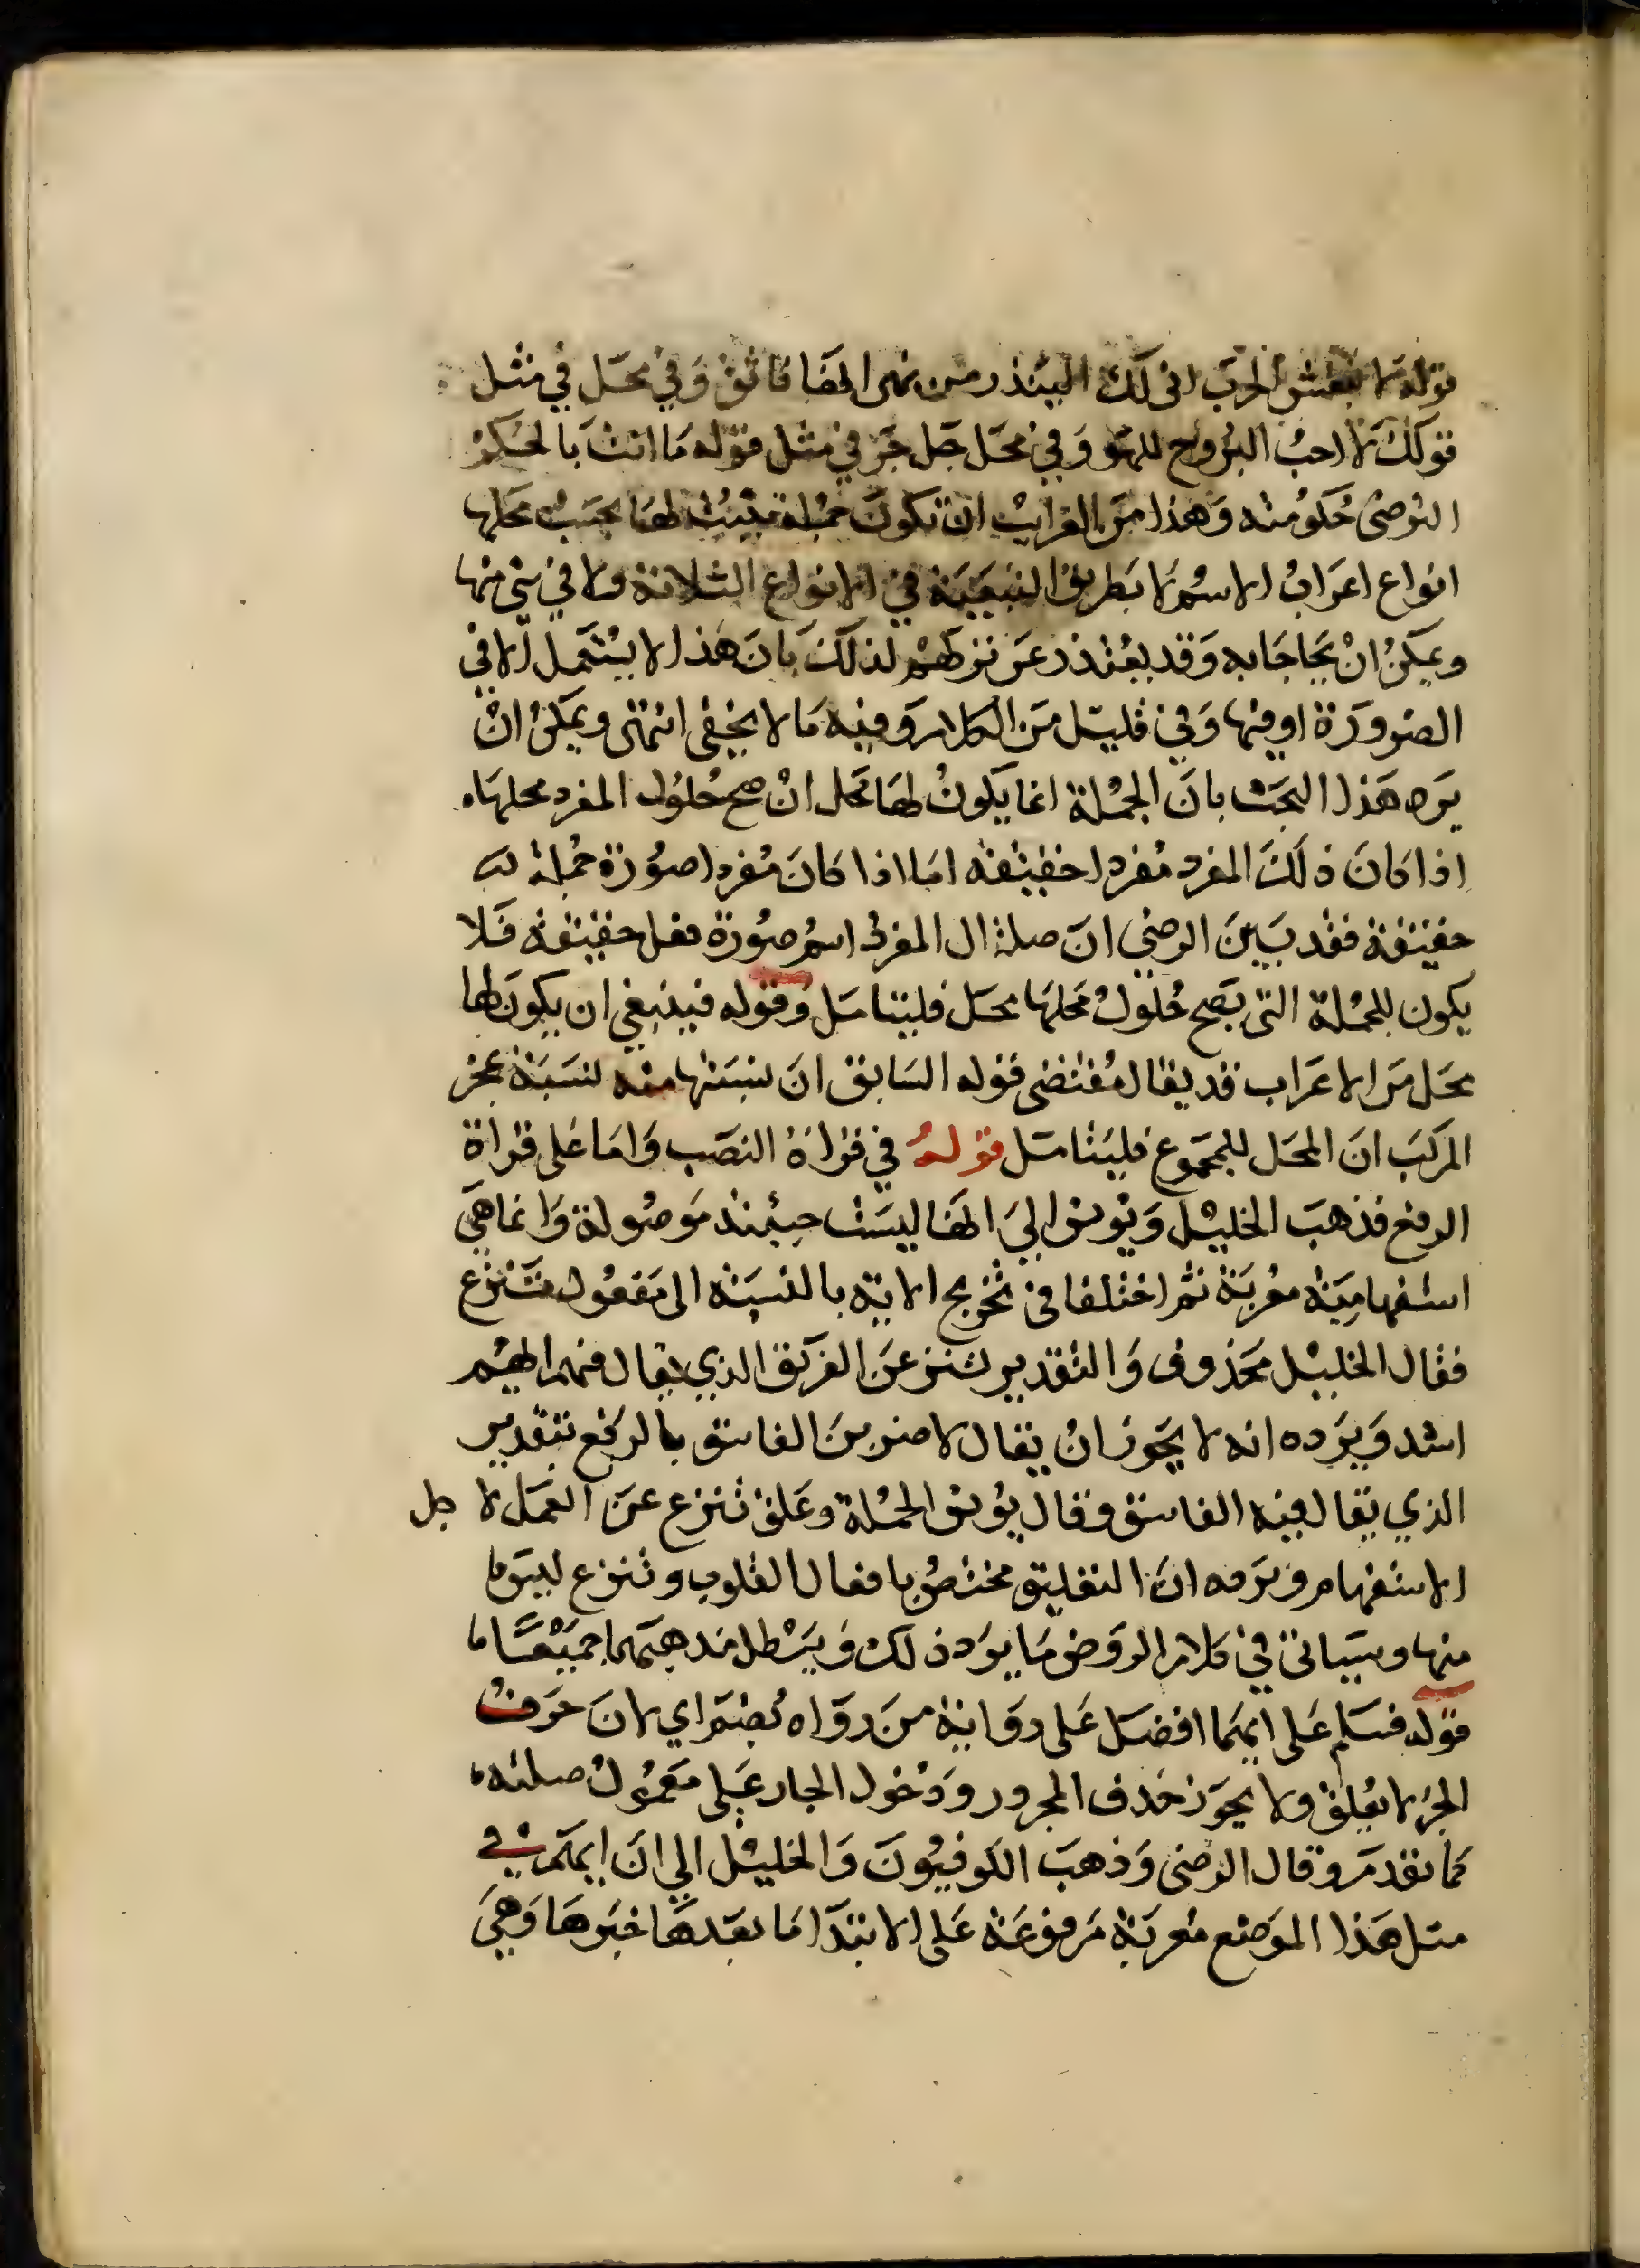 قوله لا تبعثن الحرب اني لك الينذر من نيرانها فاتق وفي محل في مثل
قولك لا احب اليروح للهو وفي محل جل جر في مثل قوله ما انت بالحكم
الترضى حكومته وهذا من الغرايب ان تكون جملة يثبت لها بحسب محلها
انواع اعراب الاسم لا بطريق التبعية في الانواع الثلاثة ولا في شي منها
ويمكن ان يحاجا به وقد يعتذر عن تركهم لذلك بان هذا لا يستعمل الا في
الضرورة او فيها وفي قليل من الكلام وفيه ما لا يخفى انتهى ويمكن ان
يرد هذا البحث بان الجملة انما يكون لها محل ان صح حلول المفرد محلها
اذا كان ذلك المفرد مفردا حقيقة اما اذا كان مفردا صورة جملة
حقيقة فقد بين الرضي ان صلة ال المفرد اسم صورة فعل حقيقة فلا
يكون للجملة التي يصح حلول محلها محل فليتامل وقوله فينبغي ان يكون لها
محل من الاعراب قد يقال مقتضى قوله السابق ان نسبتها منه نسبة عجز
المركب ان المحل للمجموع فليتامل قوله في قراة النصب واما على قراة
الرفع فذهب الخليل ويونس الى انها ليست حينئذ موصولة وانما هي
استفهامية معربة ثم اختلفا في تخريج الاية بالنسبة الى مفعول ننزع
فقال الخليل محذوف والتقدير لننزعن الفريق الذي يقال فيهم ايهم
اشد ويرده انه لا يجوز ان يقال لاضربن الفاسق بالرفع بتقدير
الذي يقال فيه الفاسق وقال يونس الجملة وعلق ننزع عن العمل لا جل
الاستفهام ويرده ان التعليق مختص بافعال القلوب وننزع ليس
منها وسياتي في كلام الروض ما يرد ذلك ويبطل مذهبهما جميعا
قوله فسلم على ايهم افضل على رواية من رواه بضم اي لان حرف
الجر لا يعلق ولا يجوز حذف المجرور ودخول الجار على معمول صلته
كما تقدم وقال الرضي وذهب الكوفيون والخليل الى ان ايهم في
مثل هذا الموضع معربة مرفوعة على الابتدا ما بعدها خبرها وهي